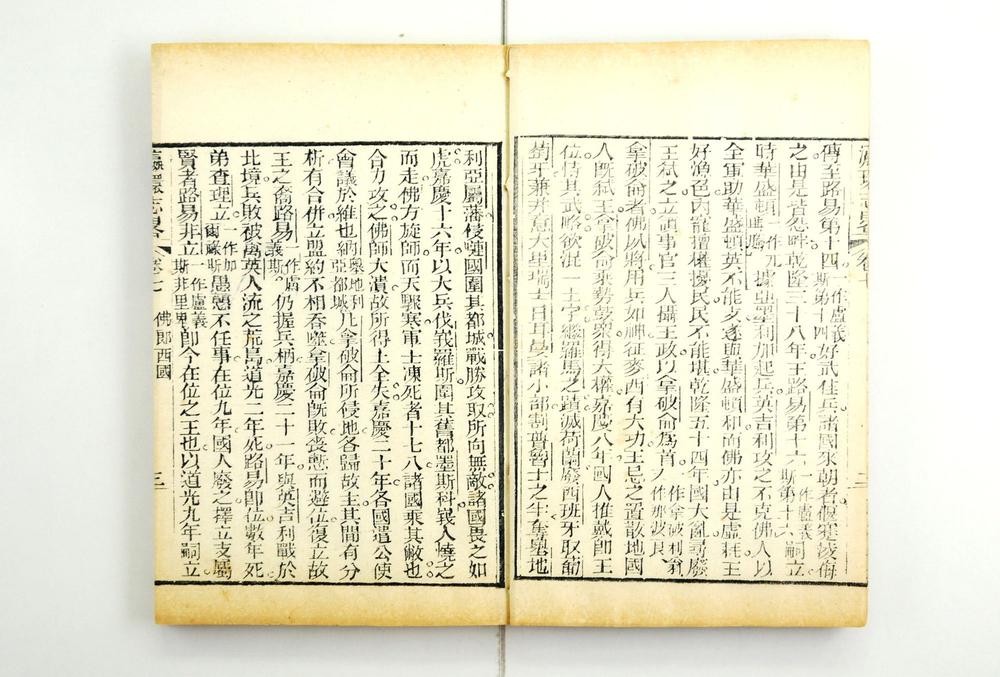 傳至路易第十四一作盧義斯第十四好武佳兵諸國來朝者偃蹇凌侮
之由是皆怨畔乾隆三十八年王路易第十六一作盧義斯第十六嗣立
時華盛頓一作兀據亞墨利加起兵英吉利攻之不克佛人以
全軍助華盛頓英不能支遂與華盛頓和而佛亦由是虛耗王
好漁色內寵擅權擾民民不能堪乾隆五十四年國大亂尋廢
王弒之立領事官三人攝王政以拿破侖爲首一作拿破利翁又作那波良
拿破侖者佛夙將用兵如神征麥西有大功王忌之置散地國
人既弒王拿破侖乘勢鼓衆得大權嘉慶八年國人推戴即王
位恃其武略欲混一土宇繼羅馬之蹟滅荷蘭廢西班牙取葡
萄牙兼并意大里瑞士日耳曼諸小部割普魯士之半奪墺地
利亞屬藩侵嗹國圍其都城戰勝攻取所向無敵諸國畏之如
虎嘉慶十六年以大兵伐峩羅斯圍其舊都墨斯科峩人燒之
而走佛方旋師而天驟寒軍士凍死者十七八諸國乘其敝也
合力攻之佛師大潰故所得土全失嘉慶二十年各國遣公使
會議於維也納墺地利亞都城凡拿破侖所侵地各歸故主其間有分
析有合併立盟約不相吞噬拿破侖旣敗喪慙而避位復立故
王之裔路易一作盧義斯仍握兵柄嘉慶二十一年與英吉利戰於
北境兵敗被禽英人流之荒島道光二年死路易即位數年死
弟查理立一作加爾祿斯愚戇不任事在位九年國人廢之擇立支屬
賢者路易非立一作盧義斯非里卑卽今在位之王也以道光九年嗣立
瀛寰志畧 卷七 佛郎西國 三